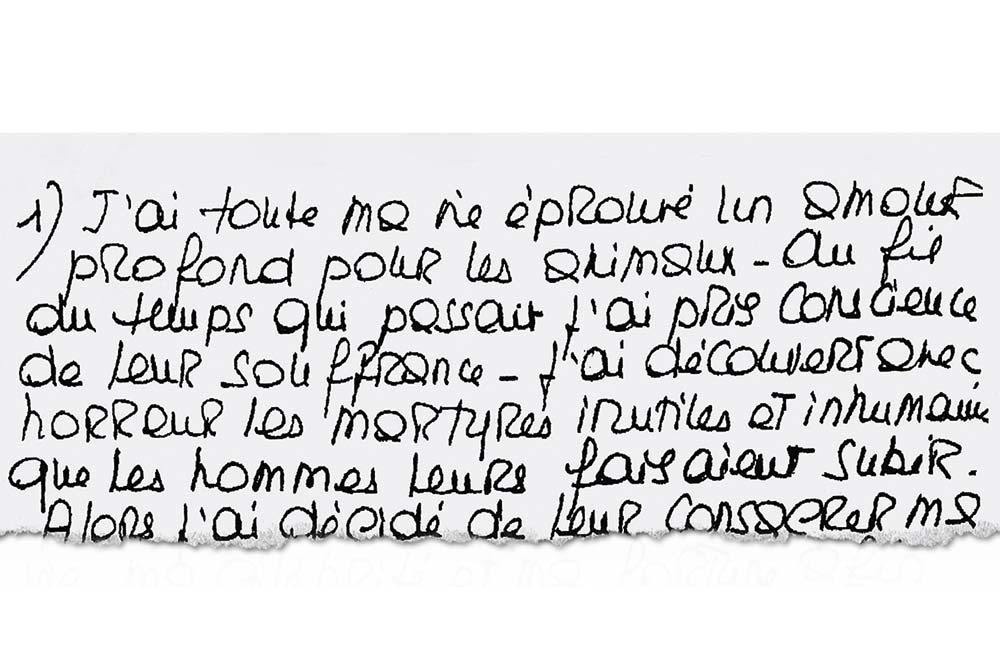 1) J'ai toute ma vie éprouvé un amour
profond pour les animaux - Au fil
du temps qui passait j'ai pris conscience
de leur souffrance - J'ai découvert avec
horreur les martyres inutiles et inhumains
que les hommes leurs faisaient subir.
Alors j'ai décidé de leur consacrer ma